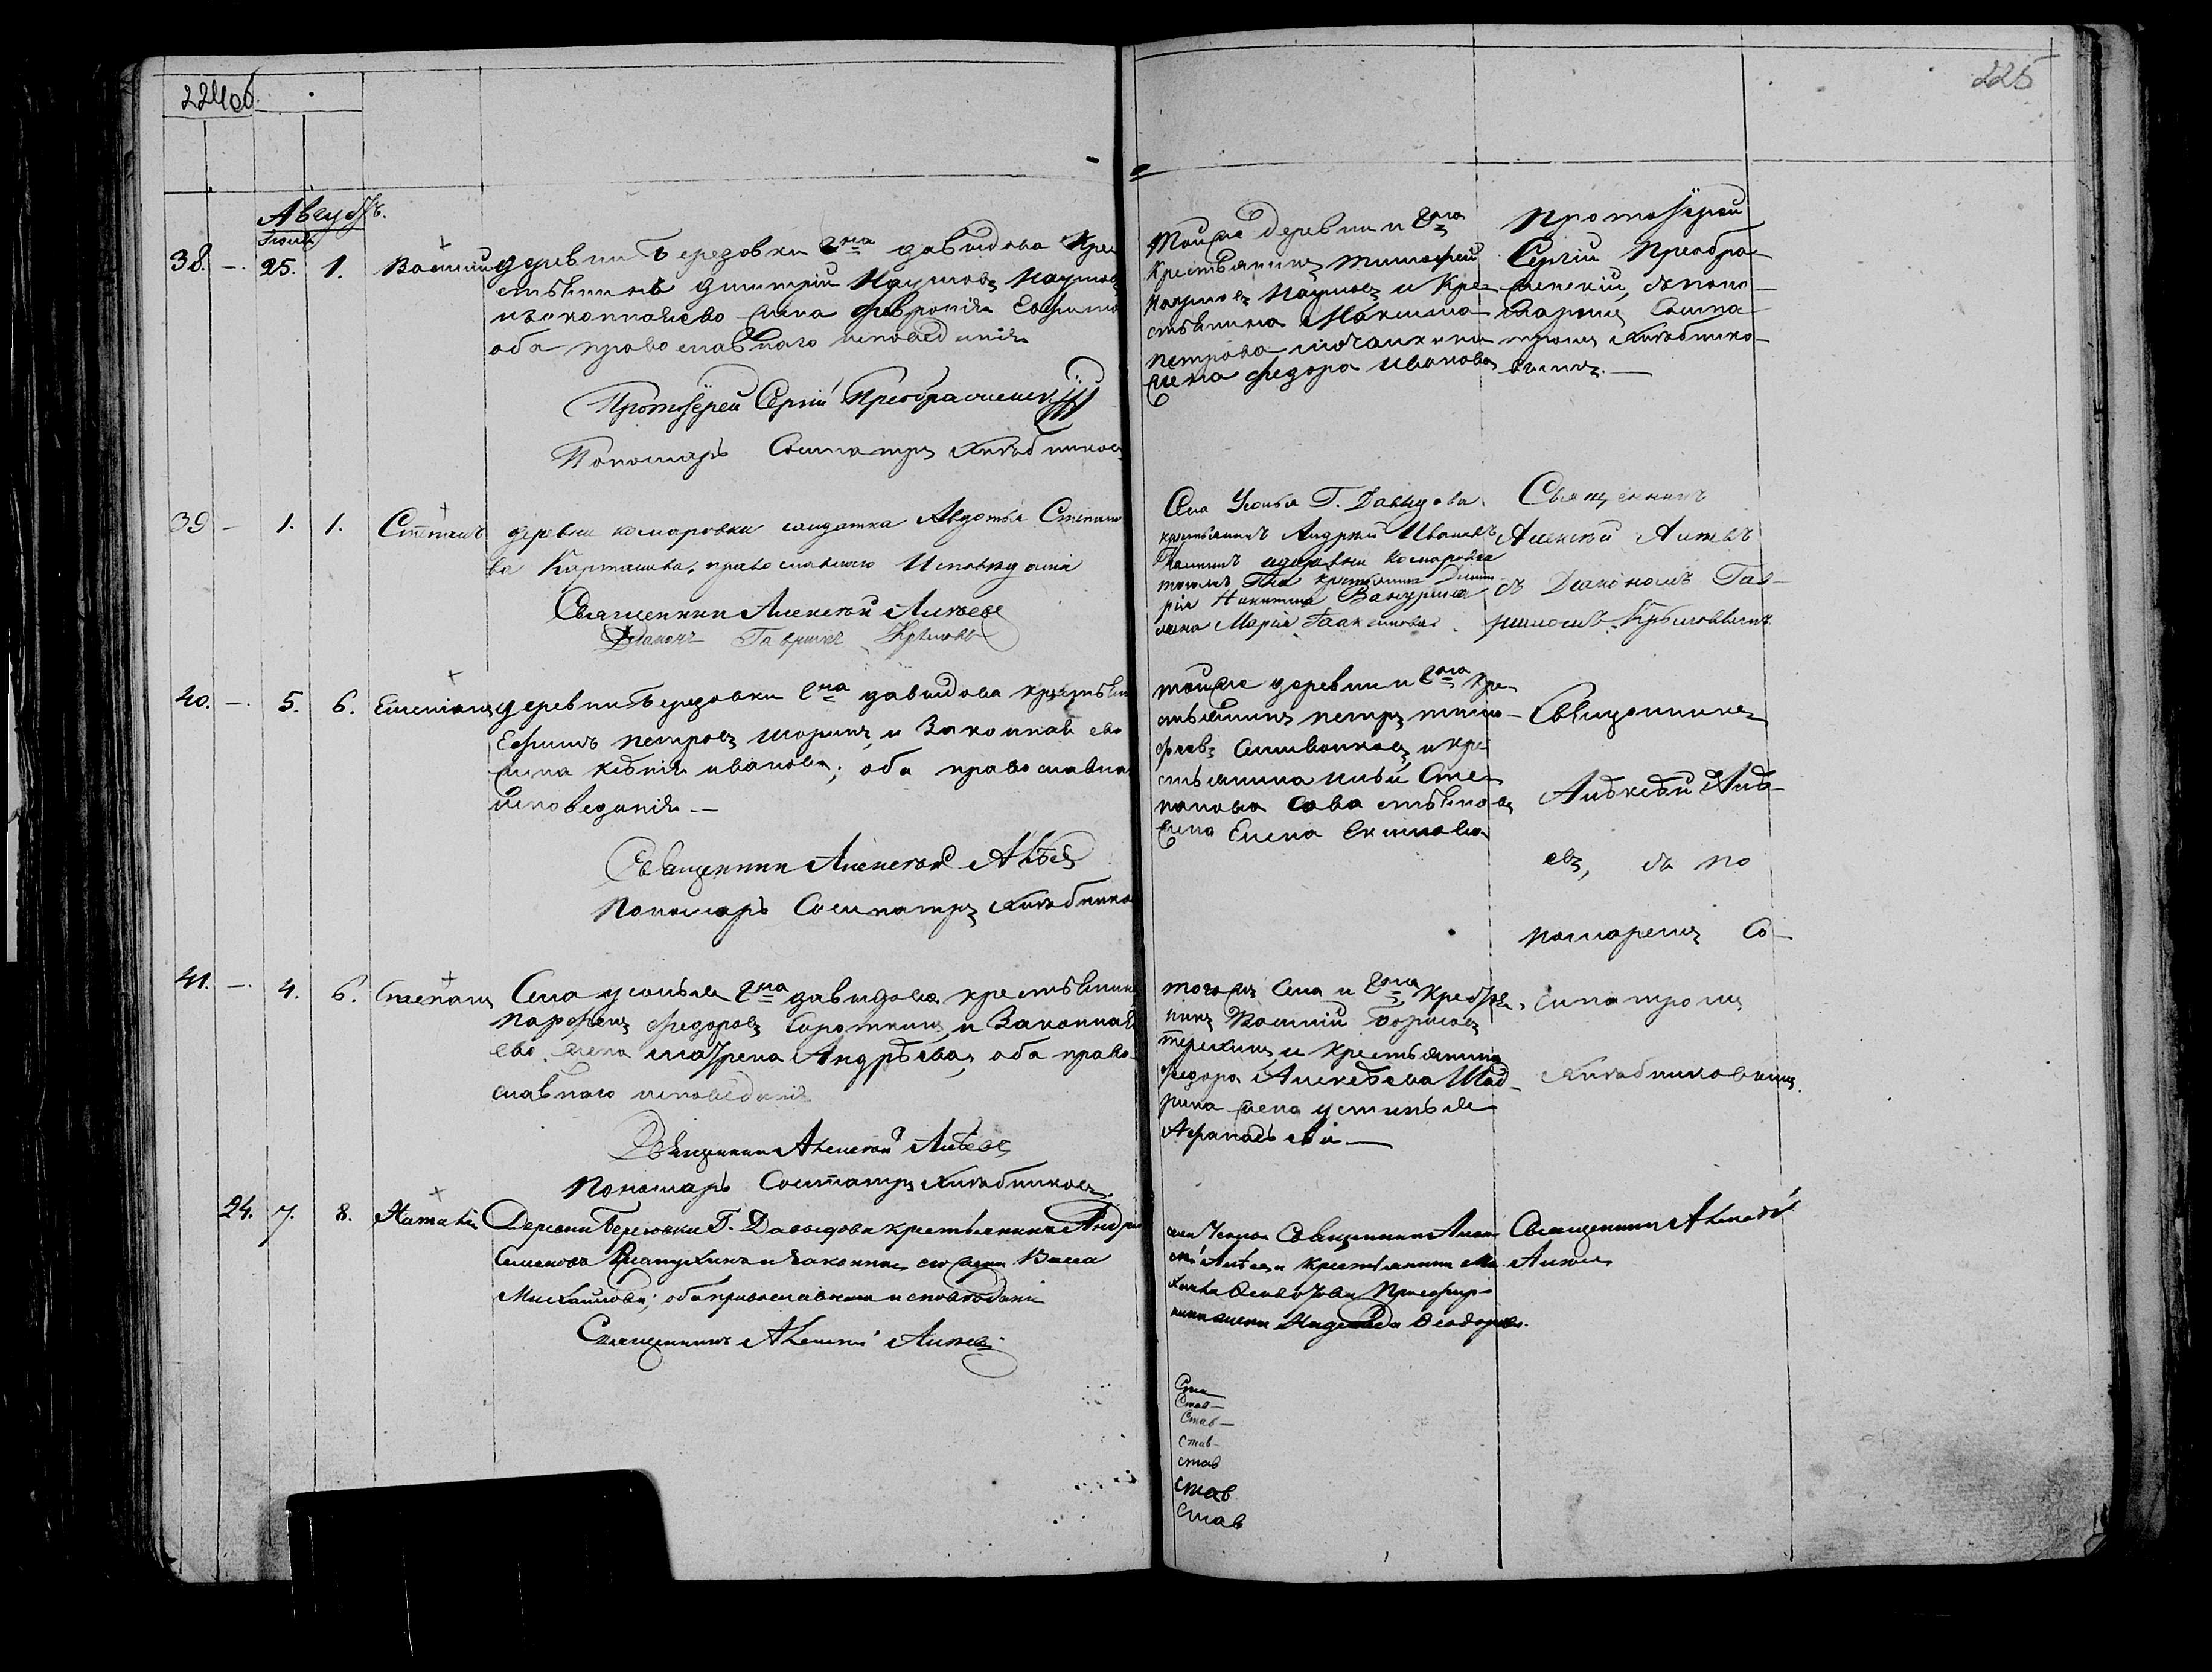 224об.
225
Августъ.
Июля
38. — 25. 1. Василий
деревни Березовки Гна давыдова Кре
стьянинъ Дмитрий Наумовъ Наумовъ
изаконнаяево жена феврония Евфимо
оба православнаго исповедания
Протоіерей Сергій Преображенскій
Пономарь Сосипатръ Хлебниковъ
тойже деревни и Гна
Крестьянинъ тимофей
Наумовъ Наумовъ и Кре-
стьянина Максима
петрова
жена федора Иванова
Протоіерей
Сергіи Преобра-
женский, съ поно-
марем Сосипа-
тромъ Хлебнико-
вымъ. —
39 — 1. 1. Степанъ
деревни комаровки солдатка Авдотья Степано
ва Карташева, православнаго Исповедания
Священникъ Алексей Алиевъ
Діаконъ Гавриилъ Крыловъ
Села Усолья Г. Давыдова
крестьянинъ Андрей Ивановъ
идеревни комаровки
тогожъ Гна крестьянина Дмит-
рія Никитина
жена Марія
Священникъ
Алексей Алиевъ
съ Діакономъ Гав-
рииломъ Крыловымъ
40. — 5. 6. Степанъ
деревни Березовки Гна давыдова крестьянин
Ефимъ петровъ шоринъ, и Законная ево
жена Ксения иванова; оба православна
исповедания. —
Священникъ Алексей Алиевъ
Пономарь Сосипатръ Хлебнико
тойже деревни и Гна Кре-
стьянинъ петръ тимо-
феевъ Селиванковъ, и кре
стьянина ильи Сте-
панова
жена Елена
Священникъ
Алексей Али-
евъ, съ по
номаремъ Со-
сипатромъ
Хлебниковымъ.
41. — 4. 6. Степанъ
Села усолья Гна давыдова крестьянинъ
парфенъ федоровъ Сороткинъ, и Законная
ево жена матрена Андреева, оба право-
славнаго исповедания
Священникъ Алексей Алиевъ
Пономарь Сосипатръ Хлебниковъ.
тогожъ Села и Гна Крестья-
нинъ Василий борисовъ
терехинъ и Крестьянина
федора Алексеева Шад-
рина жена устинья
Афанасьева —
24. 7. 8. Наталія
Деревни Березовки Г. Давыдова крестьянинъ Андрей
Семеновъ и законная его жена Васса
Михайлова; оба православнаго исповедания
Священникъ Алексей Алиевъ
села Усолья Священникъ Алек-
сей Алиевъ и крестьянина Ми
хаила
жена Надежда Феодорова.
Священникъ Алексей
Алиевъ
Ста
Став —
Став —
Став —
став
став
став